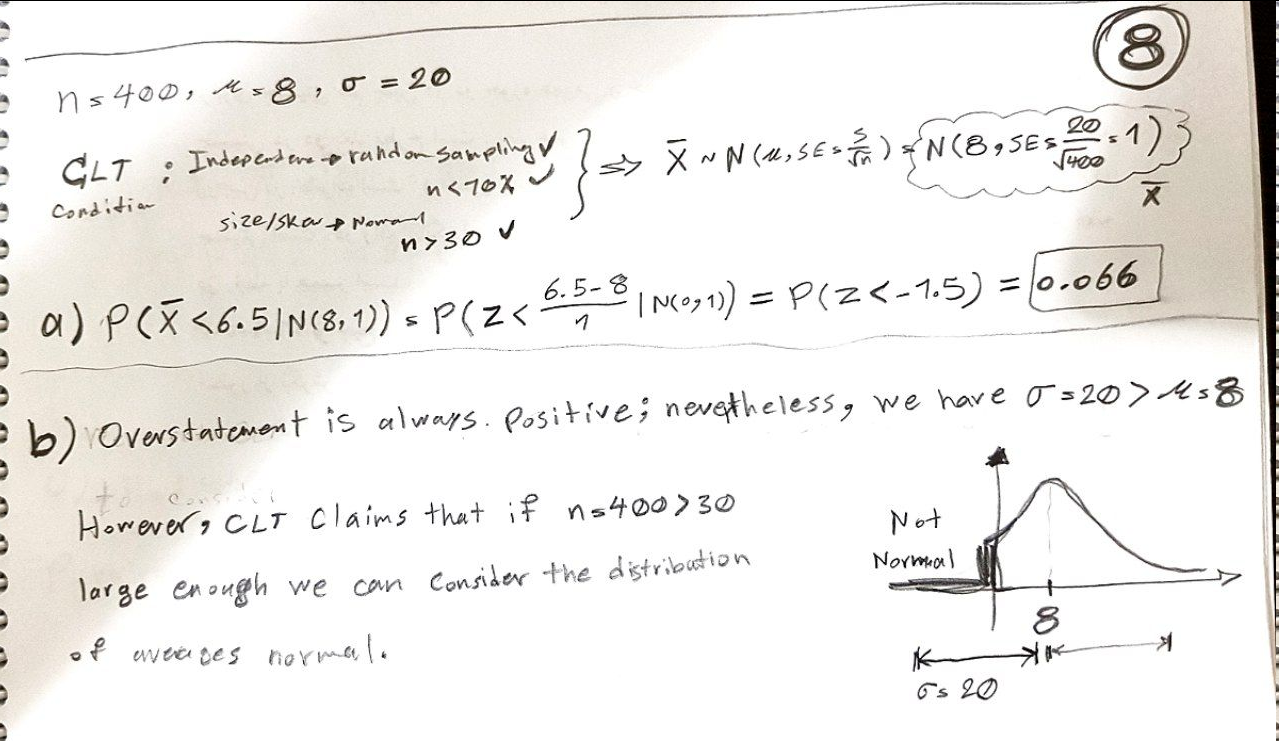 8
n = 400, μ = 8, σ = 20
CLT Condition : Independence → random sampling ✓
n < 10% ✓
size/skew → Normal
n > 30 ✓
} ⇒ X̄ ~ N(μ, SE = s/√n) = N(8, SE = 20/√400 = 1)
X̄
a) P(X̄ < 6.5 | N(8, 1)) = P(Z < (6.5-8)/1 | N(0, 1)) = P(Z < -1.5) = 0.066
b) Overstatement is always. Positive; nevertheless, we have σ = 20 > μ = 8
However, CLT Claims that if n = 400 > 30
large enough we can Consider the distribution
of averages normal.
Not
Normal
8
σ = 20